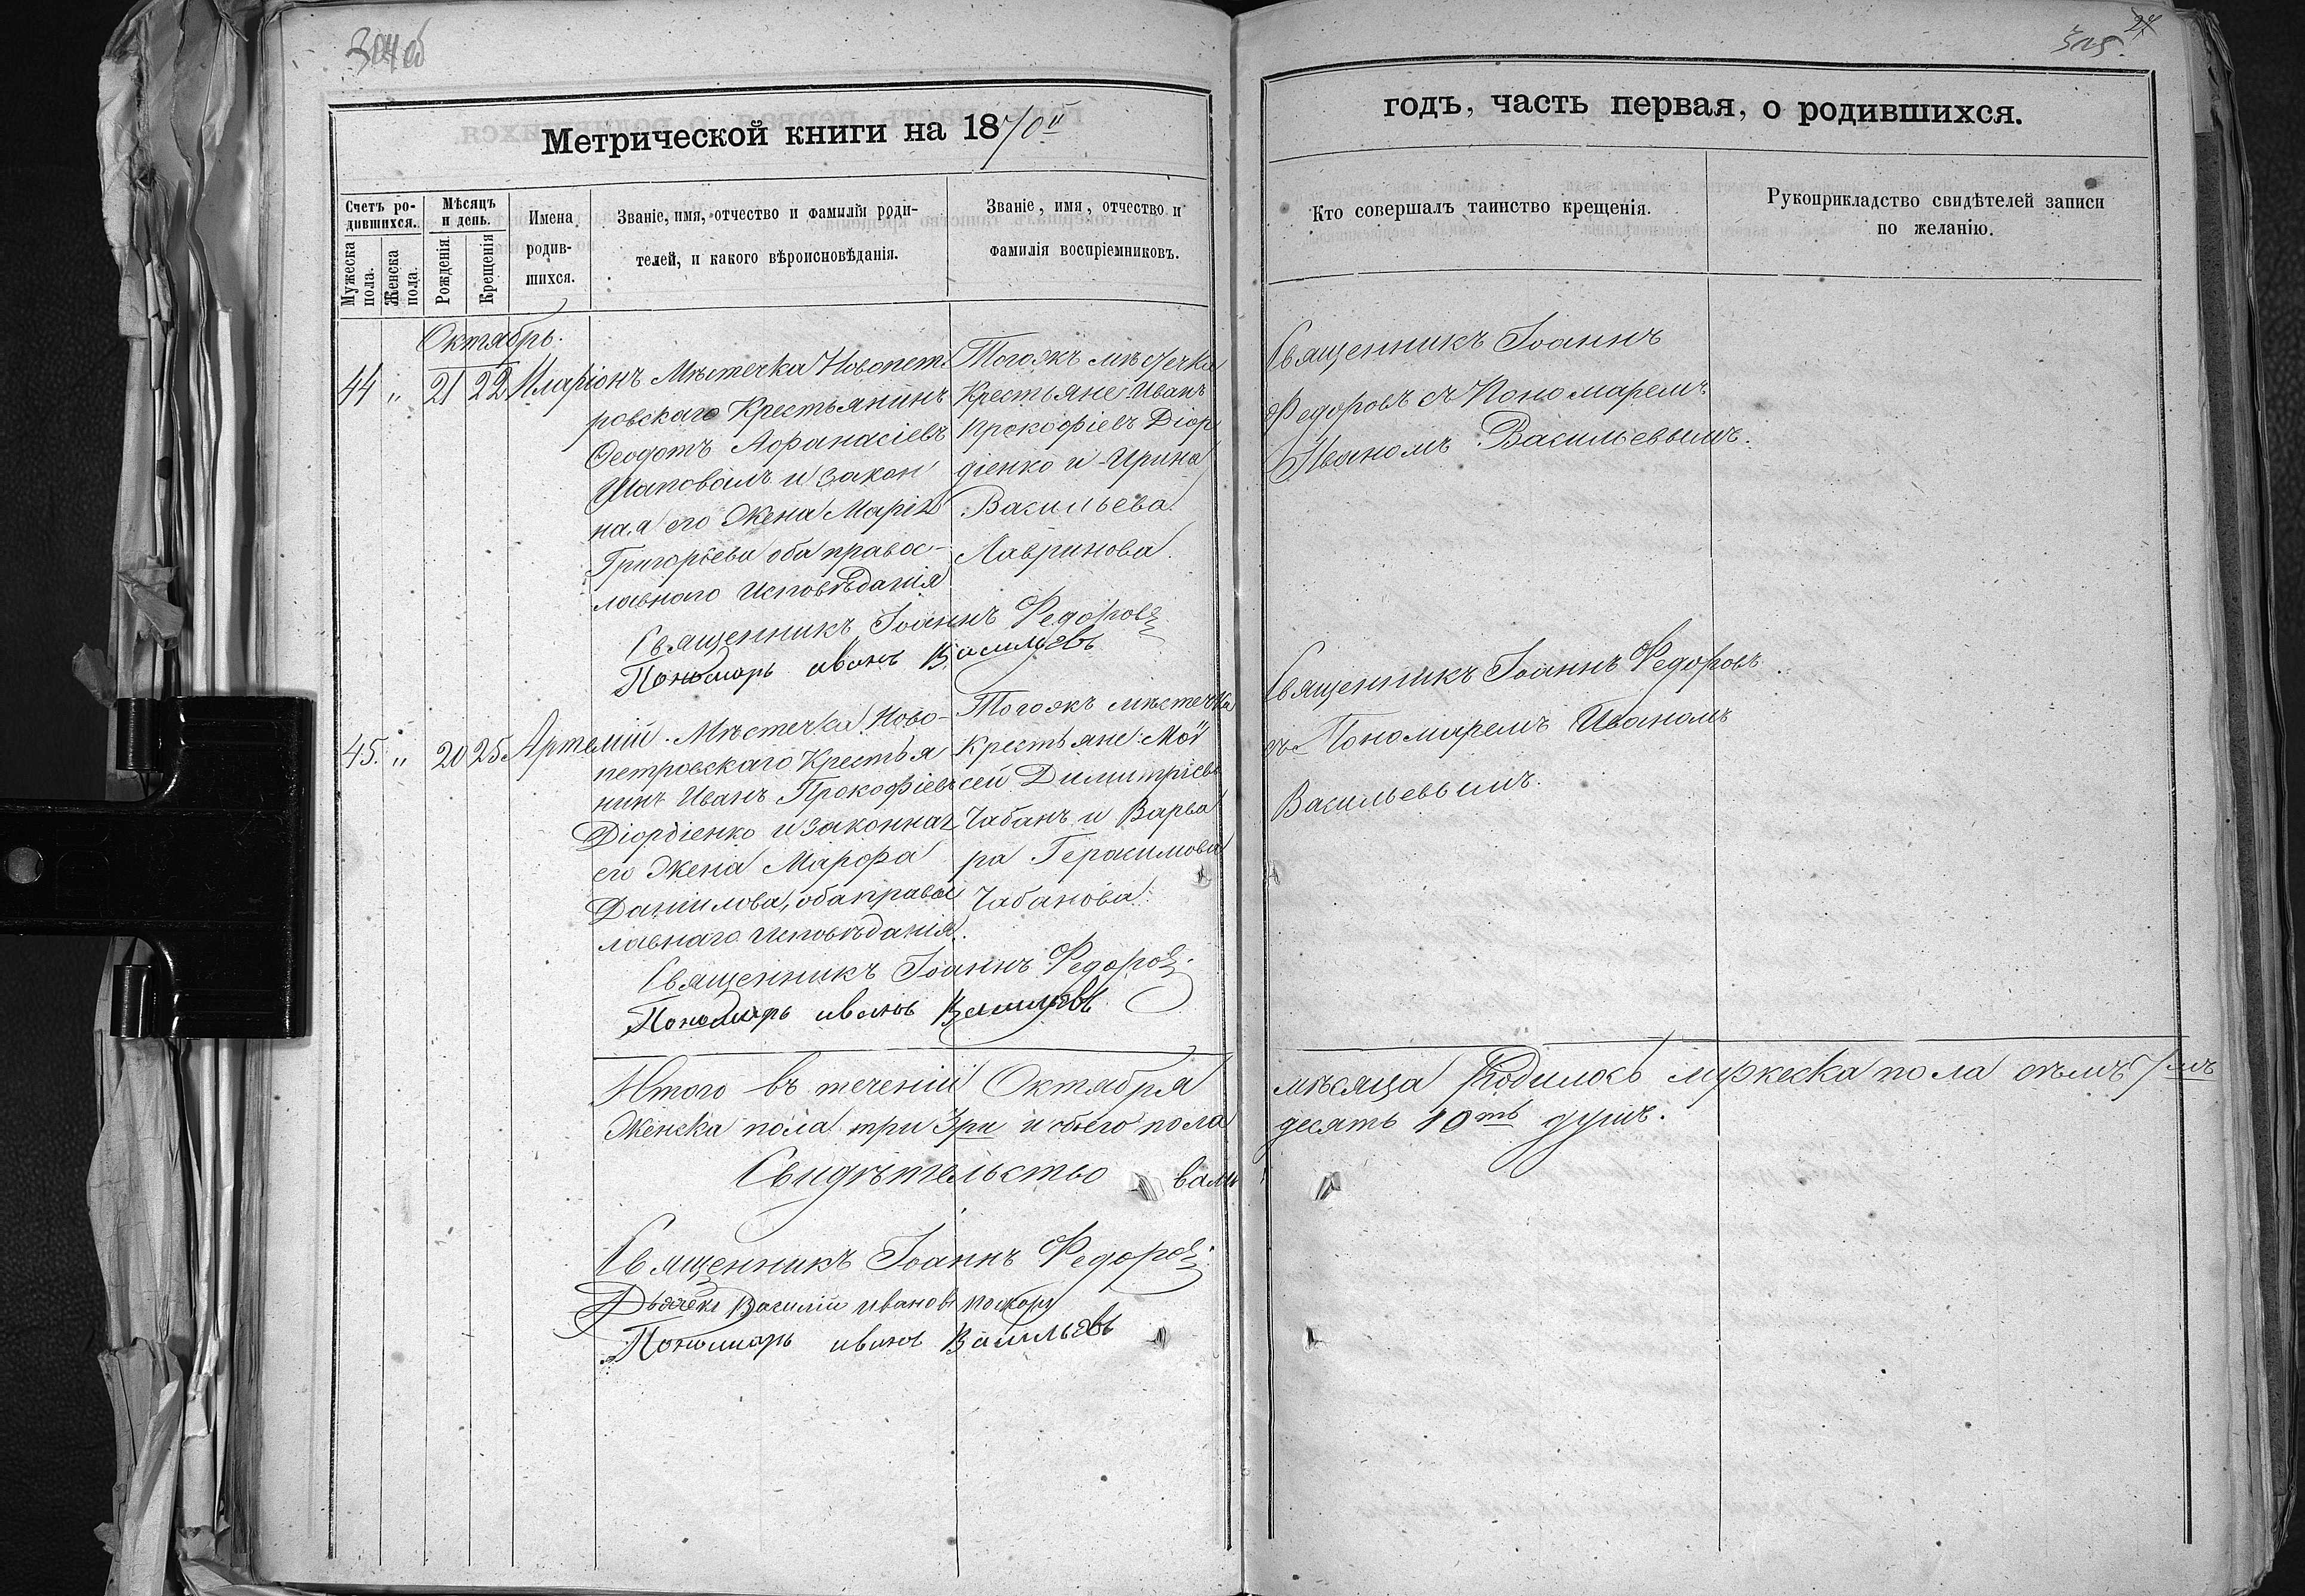 304об
27
305.
Метрической книги на 1870й
годъ, часть первая, о родившихся.
Счетъ ро-
дившихся.
Мужеска
пола.
Женска
пола.
Мѣсяцъ
и день.
Рожденія.
Крещенія
Имена
родив-
шихся.
Званіе, имя, отчество и фамилія роди-
телей, и какого вѣроисповѣданія.
Званіе, имя, отчество и
фамилія воспріемниковъ.
Кто совершалъ таинство крещенія.
Рукоприкладство свидѣтелей записи
по желанію.
Октябрь.
44 " 21 22 Иларіонъ
Мѣстечка Новопет
ровскаго Крестьянинъ
Ѳеодотъ Афанасіевъ
Шаповалъ и закон
ная его Жена Марія
Григорьева оба правос-
лавнаго Исповѣданія
Тогожъ мѣстечка
Крестьяне Иванъ
Прокофіевъ Діор
діенко и Ирина
Васильева
Лавринова.
Священникъ Іоаннъ
Федоровъ съ Пономаремъ
Иваномъ Васильевымъ.
Священникъ Іоаннъ Федоровъ
Пономарь иванъ Васильевъ
45. " 20 25 Артемій.
Мѣстечка Ново-
петровскаго Крестья
нинъ Иванъ Прокофіевъ
Діордіенко и законная
его Жена Марфа
Даніилова, оба правос
лавнаго Исповѣданія.
Тогожъ мѣстечка
Крестьяне: Мой
сей Димитріевъ
Чабанъ и Варва
ра Герасимова
Чабанова.
Священникъ Іоаннъ Федоровъ
съ Пономаремъ Иваномъ
Васильевымъ.
Священникъ Іоаннъ Федоровъ.
Пономарь иванъ Васильевъ
Итого въ теченіи Октября мѣсяца Родилось мужеска пола семь 7мь
Женска пола три 3ри и обоего пола десять 10ть душъ.
Свидѣтельство вали
Священникъ Іоаннъ Федоровъ.
Дьячекъ Василій ивановъ
Пономарь иванъ Васильевъ